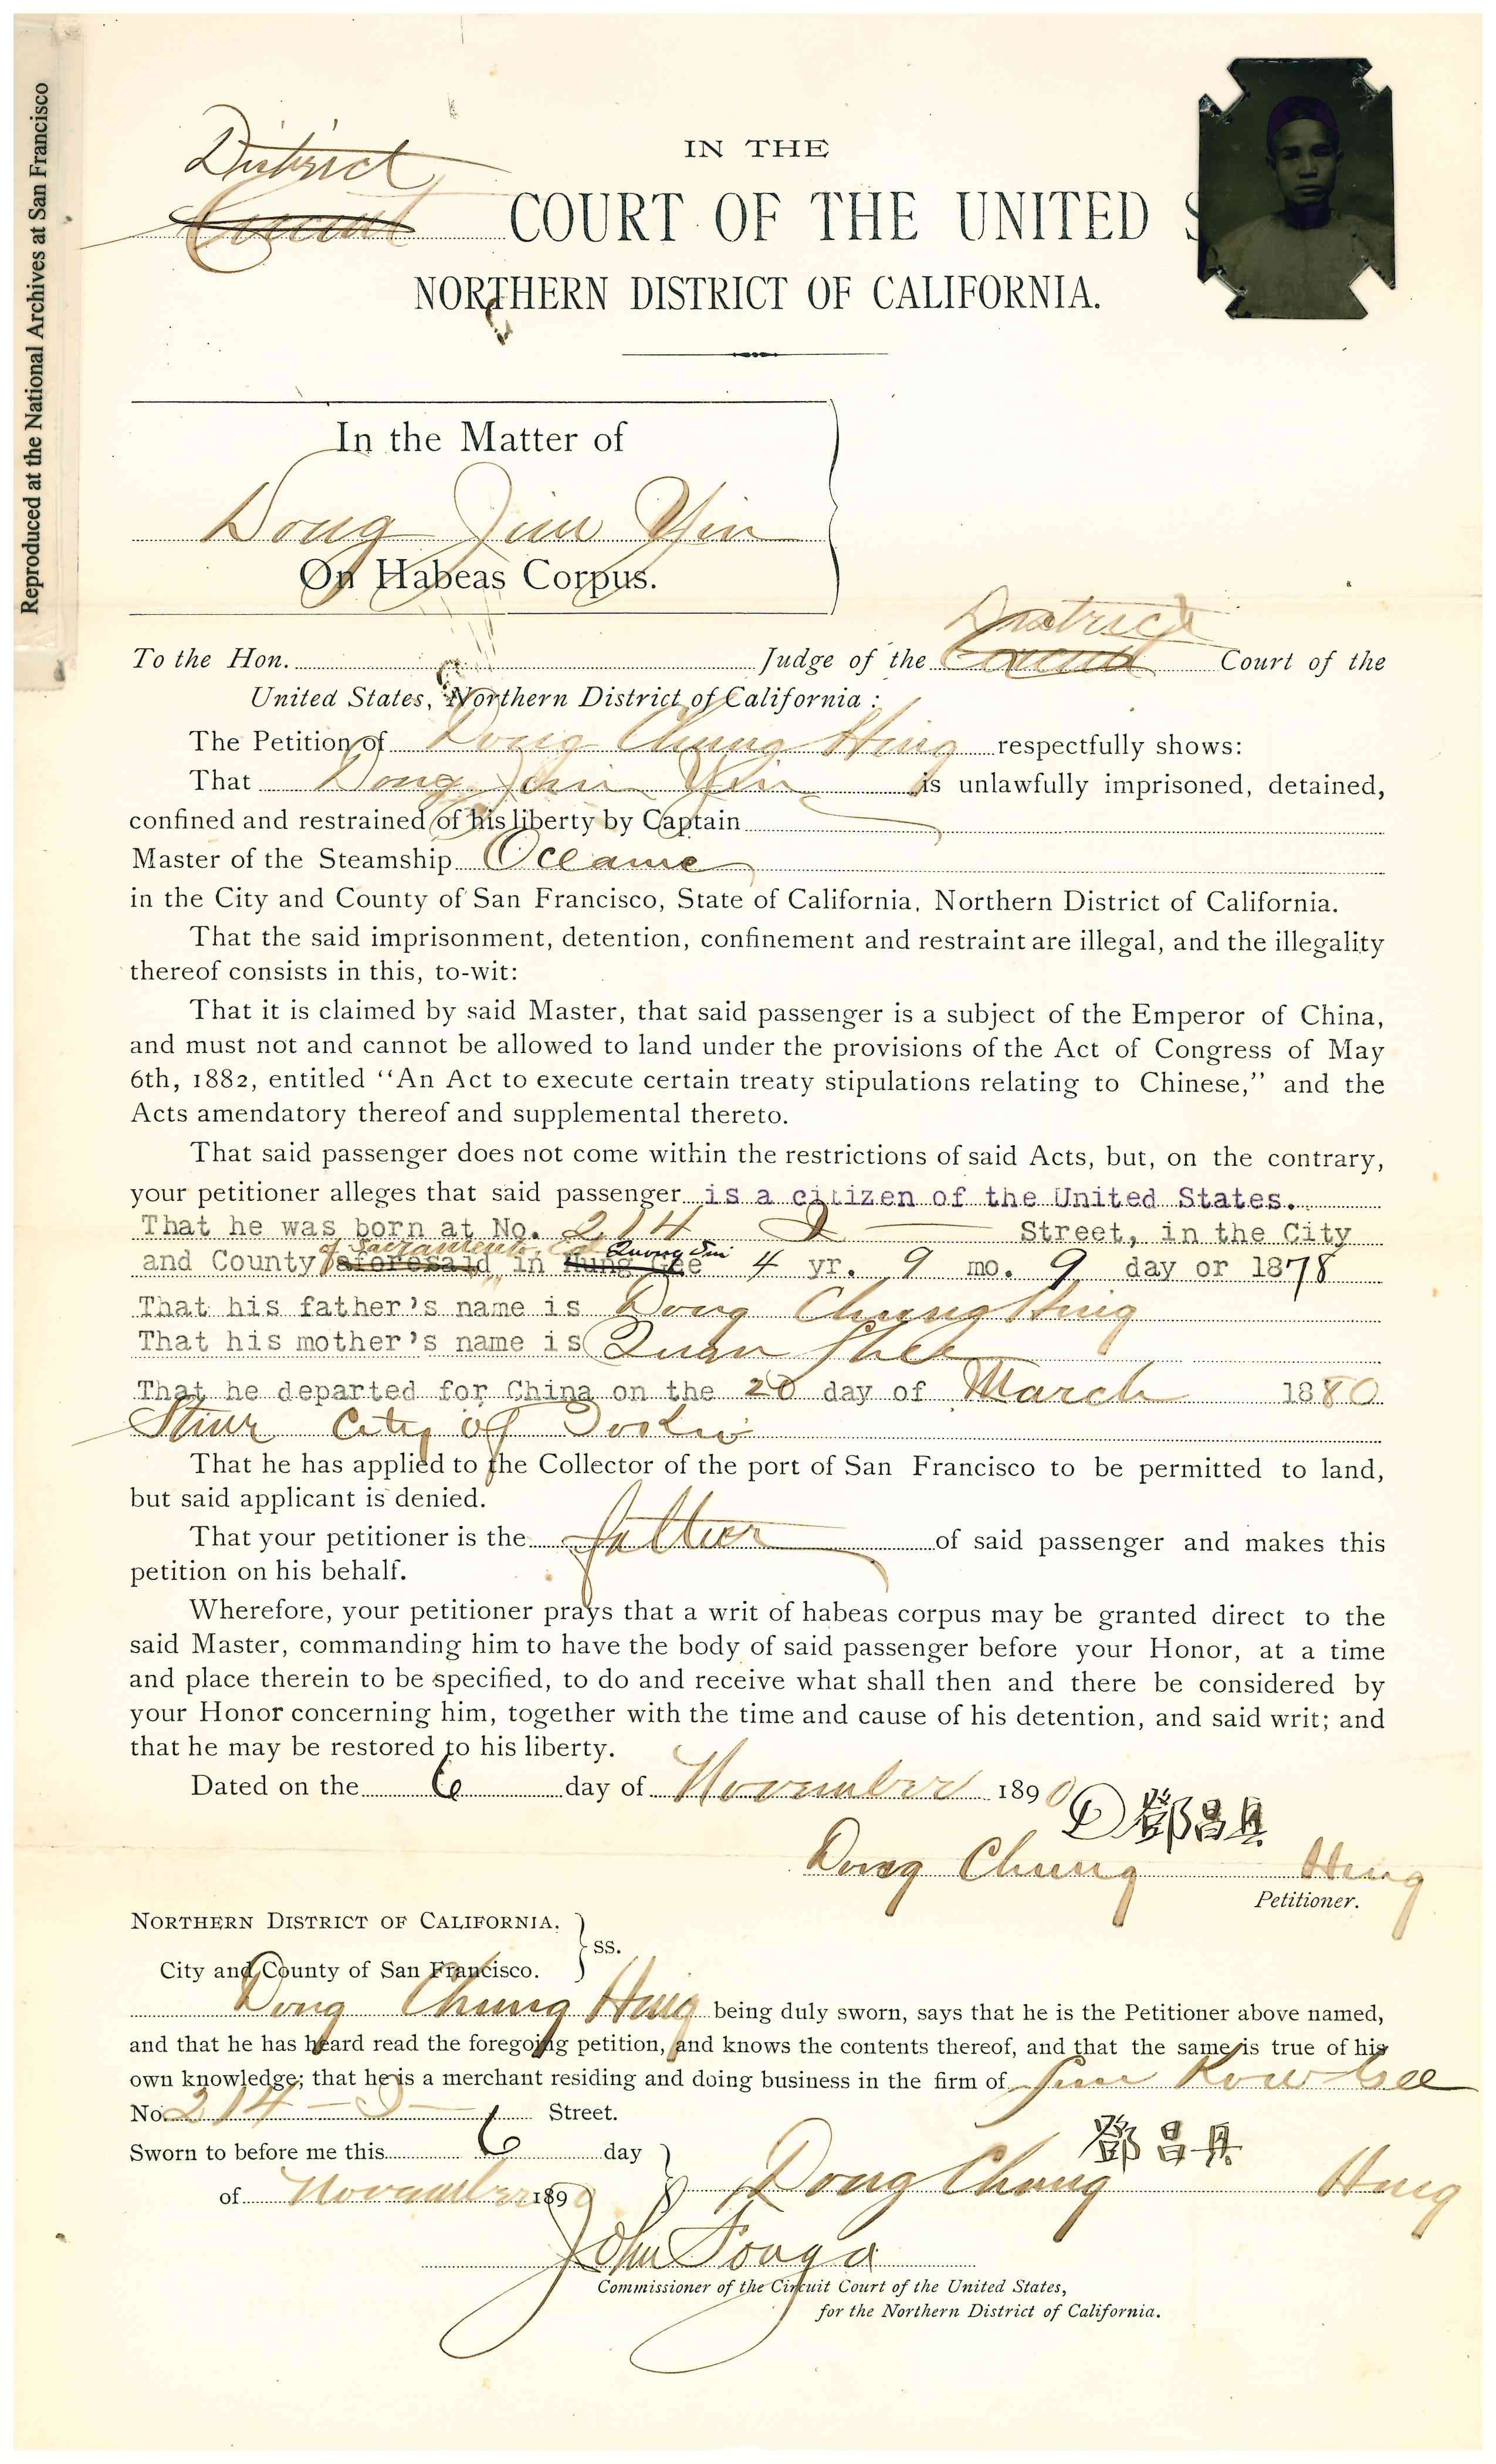 Reproduced at the National Archives at San Francisco
IN THE
District
Circuit COURT OF THE UNITED S
NORTHERN DISTRICT OF CALIFORNIA.
In the Matter of
Dong Jim Yin
On Habeas Corpus.
District
To the Hon. Judge of the Circuit Court of the
United States, Northern District of California :
The Petition of Dong Chung Hing respectfully shows:
That Dong Jim Yin is unlawfully imprisoned, detained,
confined and restrained of his liberty by Captain
Master of the Steamship Oceanic
in the City and County of San Francisco, State of California, Northern District of California.
That the said imprisonment, detention, confinement and restraint are illegal, and the illegality
thereof consists in this, to-wit:
That it is claimed by said Master, that said passenger is a subject of the Emperor of China,
and must not and cannot be allowed to land under the provisions of the Act of Congress of May
6th, 1882, entitled “An Act to execute certain treaty stipulations relating to Chinese,” and the
Acts amendatory thereof and supplemental thereto.
That said passenger does not come within the restrictions of said Acts, but, on the contrary,
your petitioner alleges that said passenger is a citizen of the United States.
That he was born at No. 214 I Street, in the City
of Sacramento, Cal Quong Sui
and County aforesaid in Hung Gee 4 yr. 9 mo. 9 day or 1878
That his father's name is Dong Chung Hing
That his mother's name is Quan Shee
That he departed for China on the 20 day of March 1880
Stmr City of Tokio
That he has applied to the Collector of the port of San Francisco to be permitted to land,
but said applicant is denied.
That your petitioner is the father of said passenger and makes this
petition on his behalf.
Wherefore, your petitioner prays that a writ of habeas corpus may be granted direct to the
said Master, commanding him to have the body of said passenger before your Honor, at a time
and place therein to be specified, to do and receive what shall then and there be considered by
your Honor concerning him, together with the time and cause of his detention, and said writ; and
that he may be restored to his liberty.
Dated on the 6 day of November 1890
鄧昌具
Dong Chung Hing
Petitioner.
NORTHERN DISTRICT OF CALIFORNIA.
ss.
City and County of San Francisco.
Dong Chung Hing being duly sworn, says that he is the Petitioner above named,
and that he has heard read the foregoing petition, and knows the contents thereof, and that the same is true of his
own knowledge; that he is a merchant residing and doing business in the firm of Kow Gee
No. 214 Street.
Sworn to before me this 6 day
鄧昌具
of November 1890 Dong Chung Hing
John Fouga
Commissioner of the Circuit Court of the United States,
for the Northern District of California.